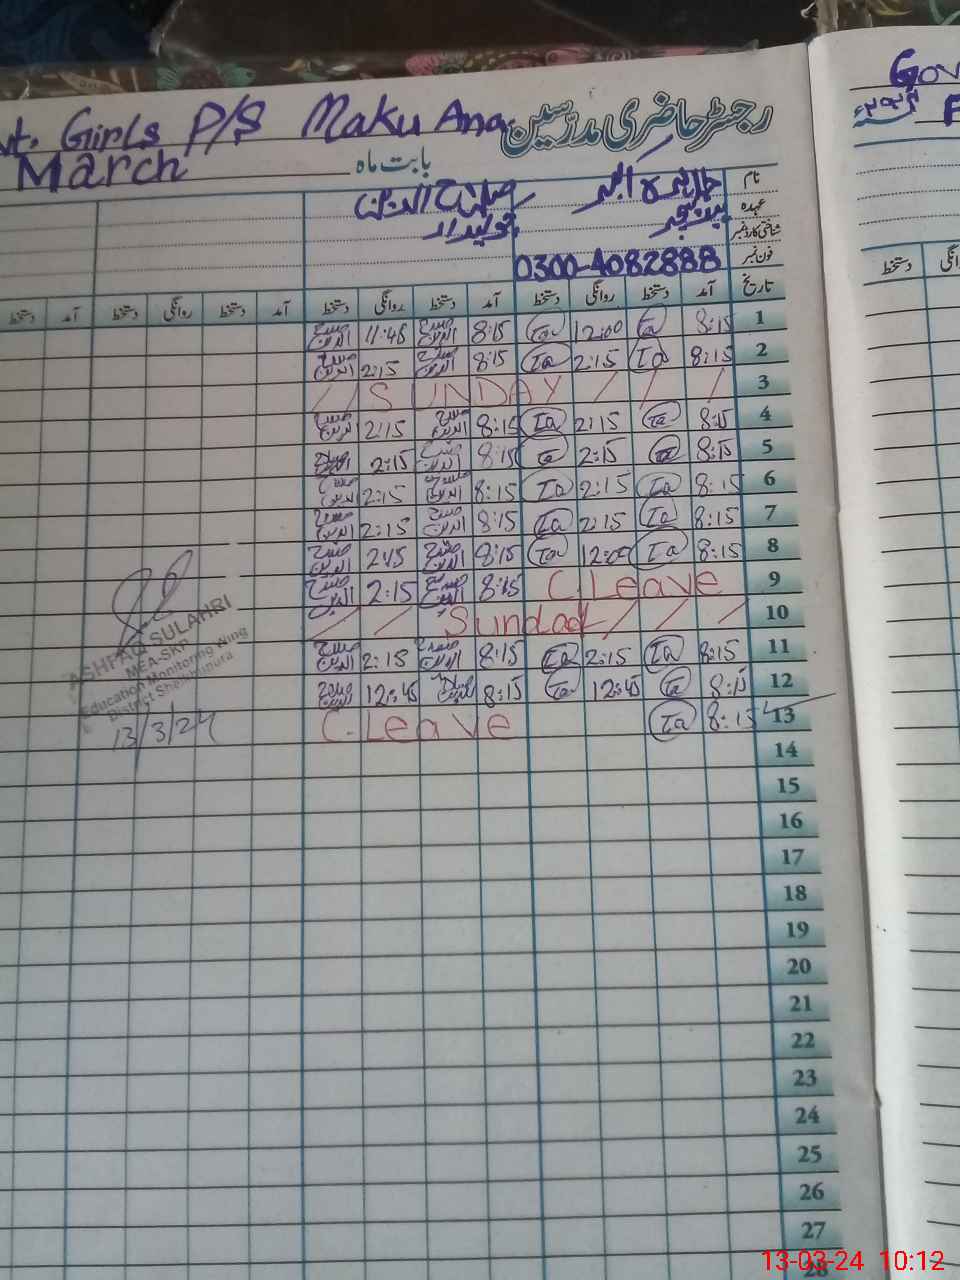 Gov
vt. Girls P/S Maku Ana
رجسٹر حاضری مدرسین
March بابت ماہ
نام
صلاح الدین
عہدہ
چوکیدار
شناختی کارڈ نمبر
فون نمبر 0300-4082888
تاریخ آمد دستخط روانگی دستخط آمد دستخط روانگی دستخط آمد دستخط روانگی دستخط آمد دستخط
1 8:15 Ia 12:00 Ia 8:15 صلاح الدین 11:45 صلاح الدین
2 8:15 Ia 2:15 Ia 8:15 صلاح الدین 2:15 صلاح الدین
3 / / SUNDAY / / /
4 8:15 Ia 2:15 Ia 8:15 صلاح الدین 2:15 صلاح الدین
5 8:15 Ia 2:15 Ia 8:15 صلاح الدین 2:15 صلاح الدین
6 8:15 Ia 2:15 Ia 8:15 صلاح الدین 2:15 صلاح الدین
7 8:15 Ia 2:15 Ia 8:15 صلاح الدین 2:15 صلاح الدین
8 8:15 Ia 12:00 Ia 8:15 صلاح الدین 2:15 صلاح الدین
9 C.Leave 8:15 صلاح الدین 2:15 صلاح الدین
10 / / Sunday / / /
11 8:15 Ia 2:15 Ia 8:15 صلاح الدین 2:15 صلاح الدین
12 8:15 Ia 12:45 Ia 8:15 صلاح الدین 12:45 صلاح الدین
13 8:15 Ia C.Leave
ASHFAQ SULAHRI
MEA-SKP
Education Monitoring Wing
District Sheikhupura
13/3/24
14
15
16
17
18
19
20
21
22
23
24
25
26
27
28
دستخط
13-03-24 10:12